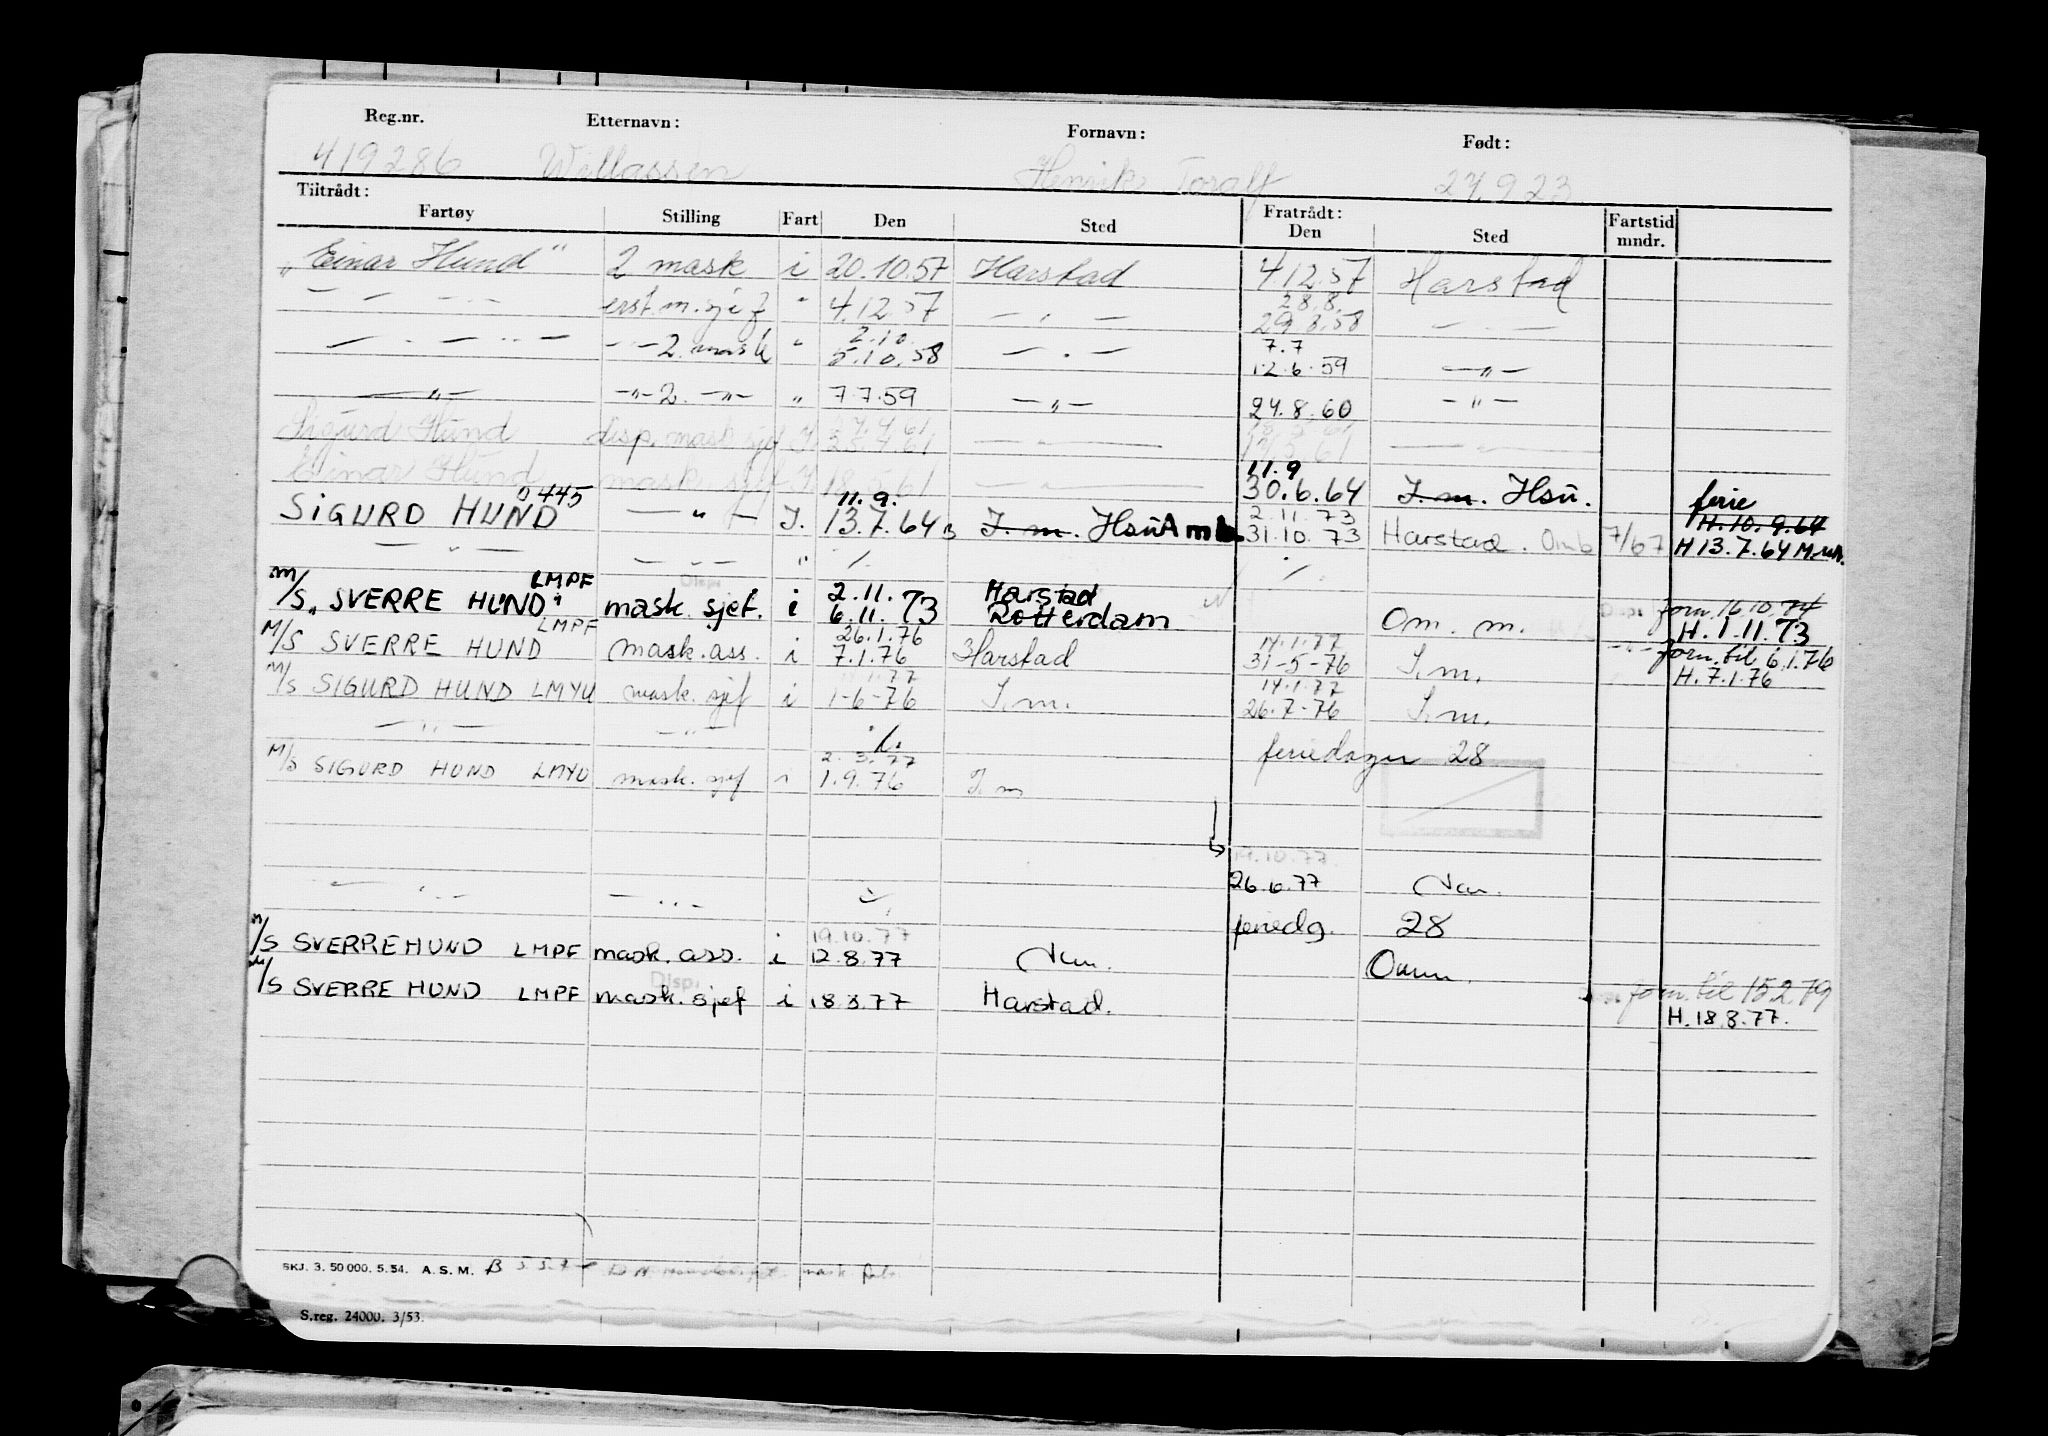 Reg.nr. Etternavn: Fornavn: Født:
419286 Willassen Henrik Toralf 27.9.23
Tiltrådt: Fratrådt:
Fartøy Stilling Fart Den Sted Den Sted Fartstid mndr.
"Einar Hund" 2 mask i 20.10.57 Harstad 4.12.57 Harstad
— " — erst. m. sjef " 4.12.57 — " — 28.8. 29.8.58 — " —
— " — — " — 2. mask " 2.10. 5.10.58 — " — 7.7 12.6.59 — " —
— " — — " — 2. — " — " 7.7.59 — " — 24.8.60 — " —
Sigurd Hund disp. mask sjef I. — " —
Einar Hund mask. sjef I. — " — 11.9 30.6.64 I. m. Hsü.
SIGURD HUND 0445 — " — I. 11.9. 13.7.64 I. m. Hsü Amb. 2.11.73 31.10.73 Harstad. Omb 7/67 ferie H. 10.9.64 H 13.7.64
— " — — " — " ./. ./.
M/S "SVERRE HUND" LMPF Disp. mask. sjef. i 2.11. 6.11.73 Harstad Rotterdam Om. m. forn. 16.10.74 H. 1.11.73
M/S SVERRE HUND LMPF mask. ass. i 26.1.76 7.1.76 Harstad 14.1.77 31-5-76 I. m. forn. til 6.1.76 H. 7.1.76
M/S SIGURD HUND LMYU mask. sjef i 1-6-76 I. m. 14.1.77 26.7-76 I. m.
— " — — " — ./. feriedager 28
M/S SIGURD HUND LMYU mask. sjef i 2.3.77 1.9.76 I. m
19.10.77.
— " — — " — 26.6.77
feriedg. 28
M/S SVERRE HUND LMPF mask. ass. i 19.10.77 12.8.77
M/S SVERRE HUND LMPF Disp. mask. sjef i 18.8.77 Harstad. forn. til 15.2.79
H. 18.8.77.
SKJ. 3. 50 000. 5.54. A. S. M.
S.reg. 24000. 3/53.